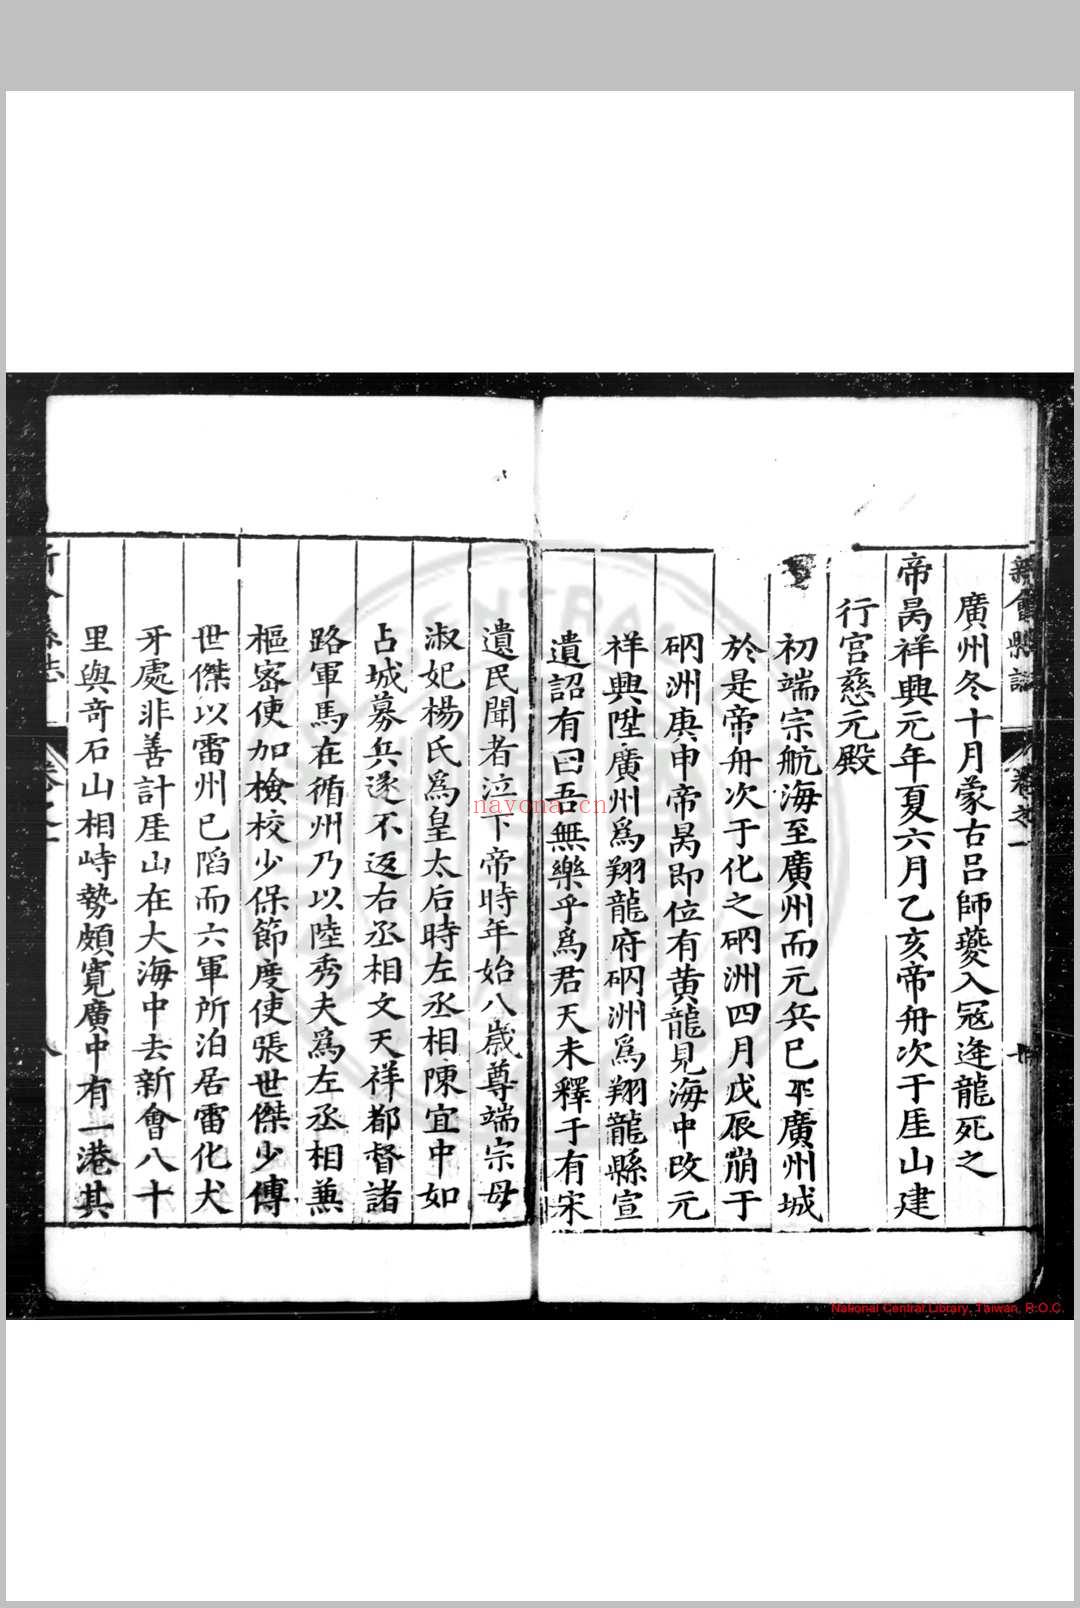 新會縣誌 卷之一
廣州冬十月蒙古呂師夔入冦逄龍死之
帝昺祥興元年夏六月乙亥帝舟次于厓山建
行宫慈元殿
初端宗航海至廣州而元兵已平廣州城
於是帝舟次于化之硇洲四月戊辰崩于
硇洲庚申帝昺即位有黄龍見海中改元
祥興陞廣州爲翔龍府硇洲爲翔龍縣宣
遺詔有曰吾無樂乎爲君天未釋于有宋
遺民聞者泣下帝時年始八歲尊端宗母
淑妃楊氏爲皇太后時左丞相陳宜中如
占城募兵遂不返右丞相文天祥都督諸
路軍馬在循州乃以陸秀夫爲左丞相兼
樞密使加檢校少保節度使張世傑少傅
世傑以雷州已陷而六軍所泊居雷化犬
牙處非善計厓山在大海中去新會八十
里與奇石山相峙勢頗寛廣中有一港其
nayona.cn
National Central Library, Taiwan, R.O.C.